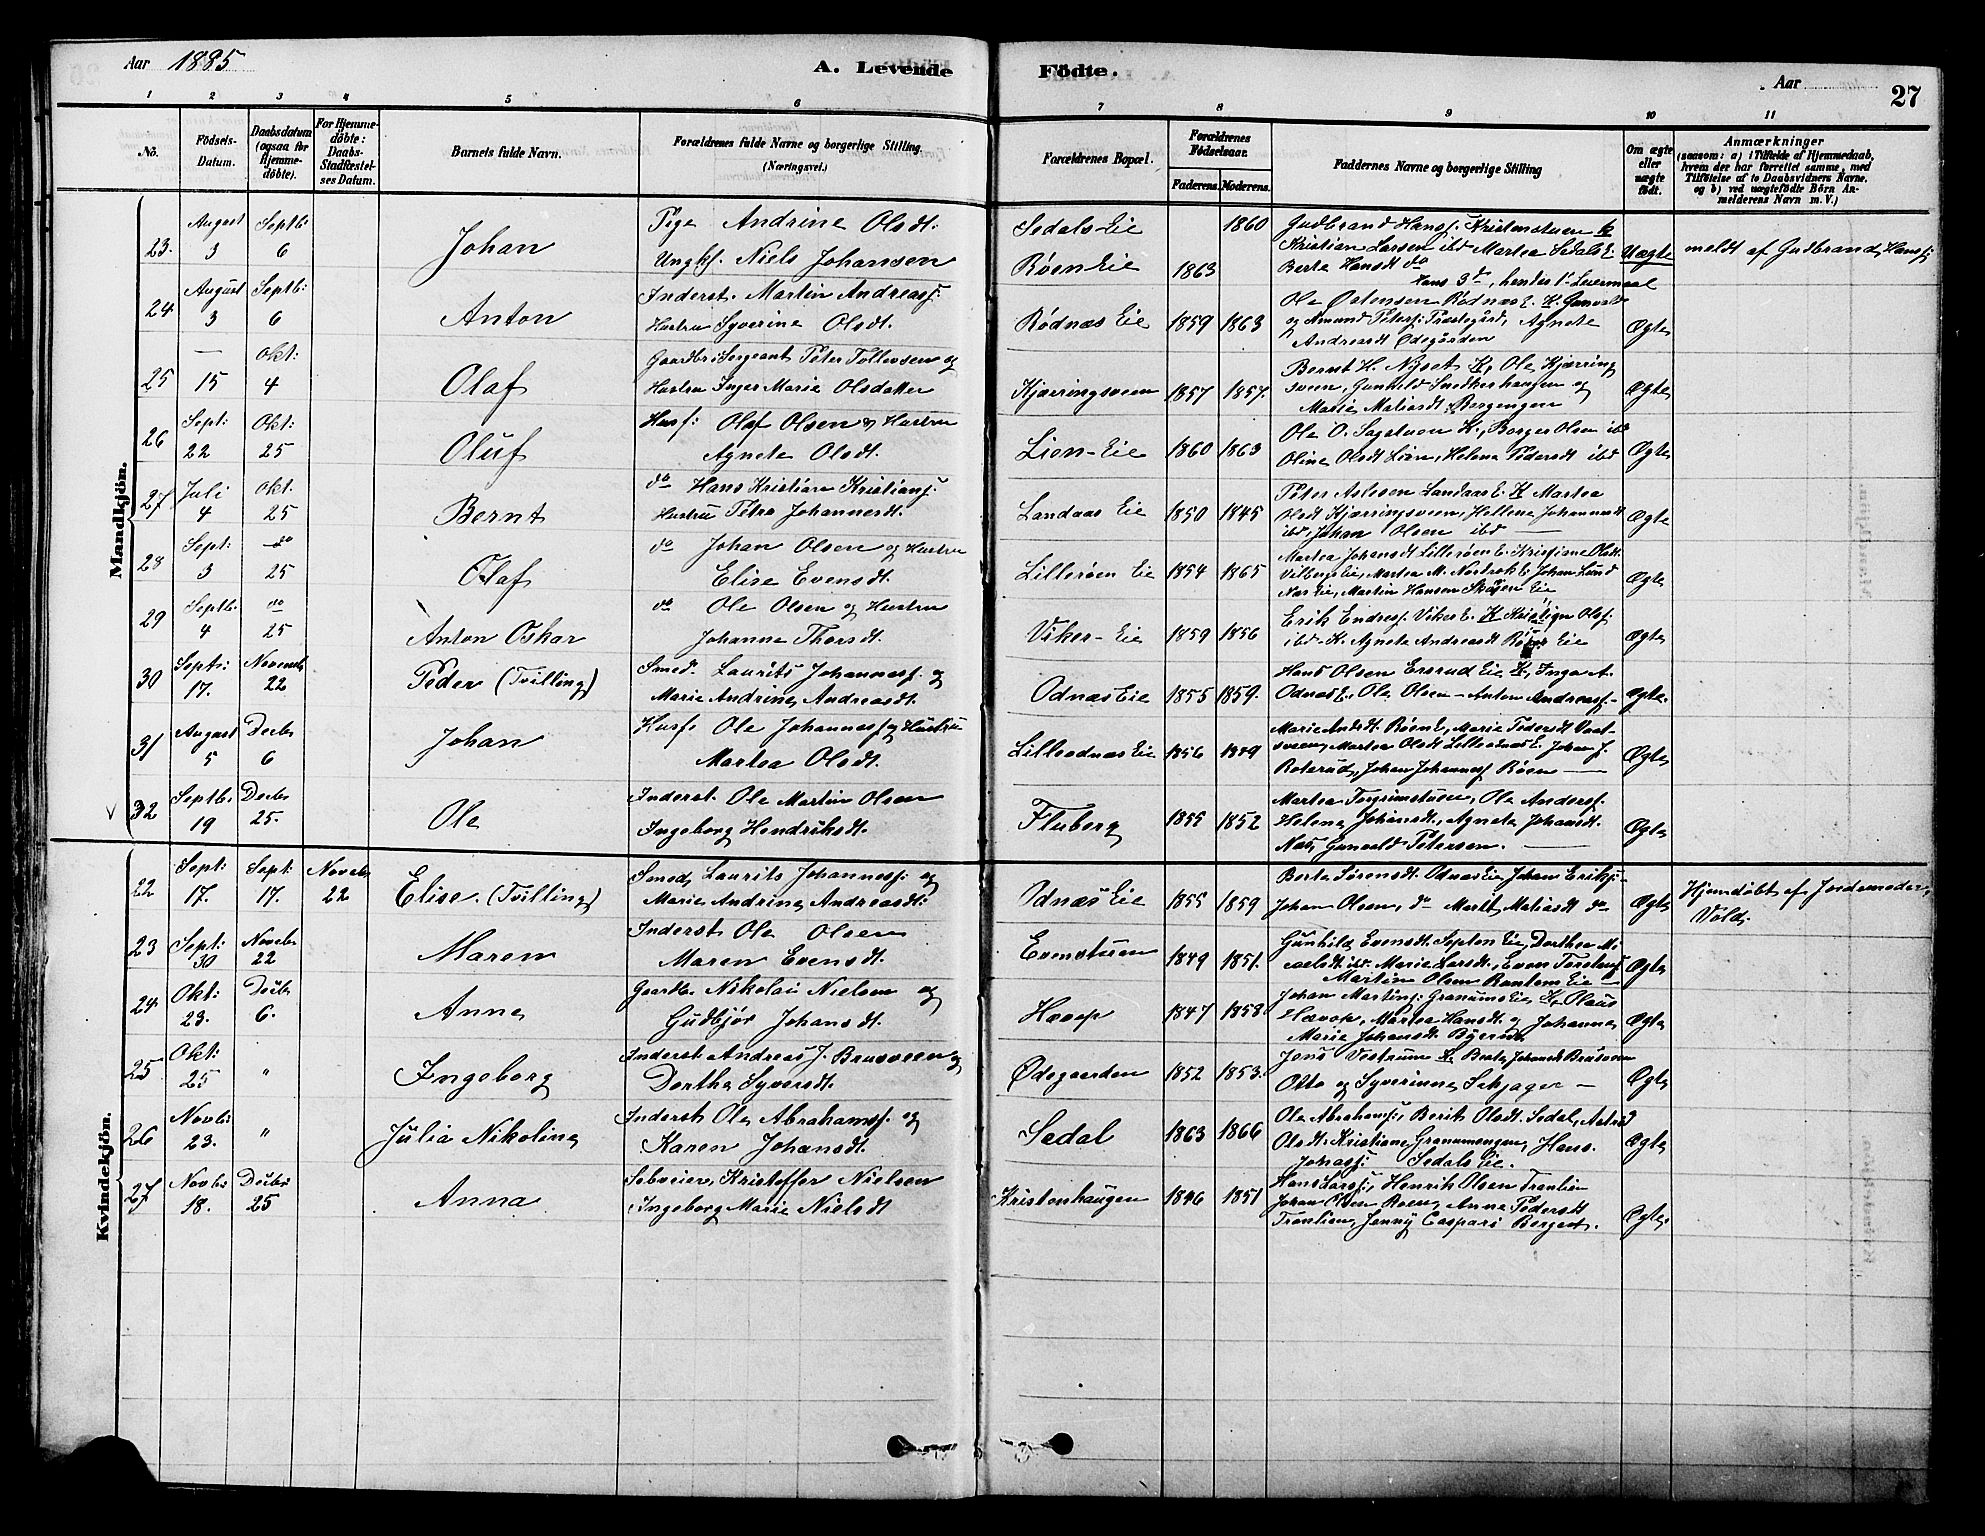 Aar 1885
A. Levende Födte.
Aar
27
1 2 3 4 5 6 7 8 9 10 11
Nô. Födsels-Datum. Daabsdatum (ogsaa for Hjemmedöbte). For Hjemmedöbte: Daabs-Stadfæstelses Datum. Barnets fulde Navn. Forældrenes fulde Navne og borgerlige Stilling. (Næringsvei.) Forældrenes Bopæl. Forældrenes Födselsaar. Faderens. Moderens. Faddernes Navne og borgerlige Stilling Om ægte eller uægte födt. Anmærkninger (saasom: a) i Tilfælde af Hjemmedaab, hvem der har forrettet samme, med Tilföielse af to Daabsvidners Navne. og b) ved uægtefödte Börn Anmelderens Navn m.V.)
Mandkjön.
23. August 3 Septb: 6 Johan Pige Andrine Olsdt:
Ungkf. Niels Johansen
Sedals-Eie
Røen Eie 1863 1860
Gudbrand Hansf. Kristenstuen K
Kristian Larsen ibd Martea Sedals E.
Berte Hansdt do
Hans 3de, hendes 1ste Leiermaal
Uægte
meldt af Gudbrand Hansf:
24. August 3 Septb: 6 Anton Inderst. Martin Andreasf:
Hustru Syverine Olsdt.
Rødnæs Eie 1859 1863
Ole Østensen Rødnæs E. K. Gunvald
og Amund Petersf: Præstegård, Agnete
Andreasdt Ødegården
Ægte
25 — 15 Okt: 4 Olaf Gaardbr: Sergeant Peter Tollevsen og
Hustru Inger Marie Olsdatter
Kjærringsveen 1857 1857.
Bernt H. Nyset K, Ole Kjærring
sveen, Gunhild Snedkerhaugen og
Marie Matiasdt Bergengen
Ægte
26 Sept: 22 Okt: 25 Oluf Husf: Olaf Olsen & Hustru
Agnete Olsdt.
Lien-Eie 1860 1863
Ole O. Sagstuen K., Borger Olsen ibd
Oline Olsdt Lien, Helene Pedersdt ibd
Ægte
27 Juli 4 Okt. 25 Bernt do Hans Kristian Kristiansf:
Hustru Petra Johannesdt.
Landaas Eie 1850 1845
Peter Aslesen Landaas E. K Martea
Olsdt Kjærringsveen, Hellene Johannesdt
ibd, Johan Olsen ibd —
Ægte
28 Sept: 3 do 25 Olaf do Johan Olsen og Hustru
Elise Evensdt.
Lillerøen Eie 1854 1865
Martea Johansdt Lillerøen E. Kristiane Olsdt.
Vilbergs Eie, Martea M. Nordrak E. Johan Lund
Næs Eie, Martin Hansen Skøien Eie
Ægte
29 Septb: 4 do 25 Anton Oskar do Ole Olsen og Hustru
Johanne Thorsdt.
Viker-Eie 1859 1856
Erik Endresf. Viker E. K Kristian Olsf:
ibd K. Agnete Andreasdt Røen Eie
Ægte
30 Septr: 17. Novemb 22 Peder (Tvilling) Smed. Laurits Johannesf. og
Marie Andrine Andreasdt.
Odnæs Eie 1855 1859.
Hans Olsen Ersrud Eie K, Inger A.
Odnæs E., Ole Olsen – Anton Andreasf –
Ægte.
31 August 5 Decbr 6 Johan Husf. Ole Johannesf og Hustru
Martea Olsdt.
Lilleodnæs Eie 1856 1849
Marie Andsdt. Røen E, Marie Pedersdt
sveen, Martea Olsdt Lilleodnæs E. Johan J.
Roterud, Johan Johannesf Røen —
Ægte
32 Septb: 19 Decbr 25. Ole Inderst. Ole Martin Olsen
Ingeborg Hendriksdt.
Fluberg 1855 1852
Martea Torgrimstuen, Ole Andersf.
Helene Johansdt, Agnete Johansdt.
Næs, Gunvald Petersen. —
Ægte
Kvindekjön.
22 Sept: 17. Sept: 17. Novbr 22 Elise. (Tvilling) Smed, Laurits Johannesf: og
Marie Andrine Andreasdt:
Odnæs Eie 1855 1859
Berte Sørensdt. Odnæs Eie, Johan Eriks: –
Johan Olsen, do Marit Matiasdt do
Ægte
Hjemdøbt af Jordemoder,
Vold.
23 Sept: 30 Novbr 22 Maren Inderst Ole Olsen
Maren Evensdt.
Evenstuen 1849 1851.
Gunhild Evensdt. Septon Eie, Dorthea Mi-
kaelsdt ibd. Marie Larsdt., Even Torstensf
Martin Olsen Rantens Eie —
Ægte
24. Okt: 23. Decbr 6. Anne Gaardbr. Nikolai Nielsen og
Gudbjør Johansdt.
Haoop 1847 1858.
Johan Martinsf: Granums Eie K, Olaus
Haoop, Martea Hansdt og Johanne
Marie Johansdt. Bøgerud.
Ægte
25. Okt: 25 " Ingeborg Inderst Andreas J. Brusveen og
Dorthe Syversdt.
Ødegaarden 1852 1853.
Jens Vestrum K, Berte Johansdt Brusveen
Otto og Syverinne Sekjager —
Ægte
26 Novbr 23. " Julia Nikoline Inderst Ole Abrahamsf. og
Karen Johansdt.
Sedal 1863 1866
Ole Abrahamsf:, Berit Olsdt. Sedal, Astrid
Olsdt. Kristiane Granumengen, Hans
Johansf: Sedals Eie.
Ægte
27 Novbr 18. Decbr 25 Anna Selveier, Kristoffer Nielsen
Ingeborg Marie Nielsdt
Kristenhaugen 1846 1851
Hans Larsf:, Henrik Olsen Tranlien
Johan Olsen Roen, Anne Pedersdt
Tranlien, Jenny Caspara Berget.
Ægte.